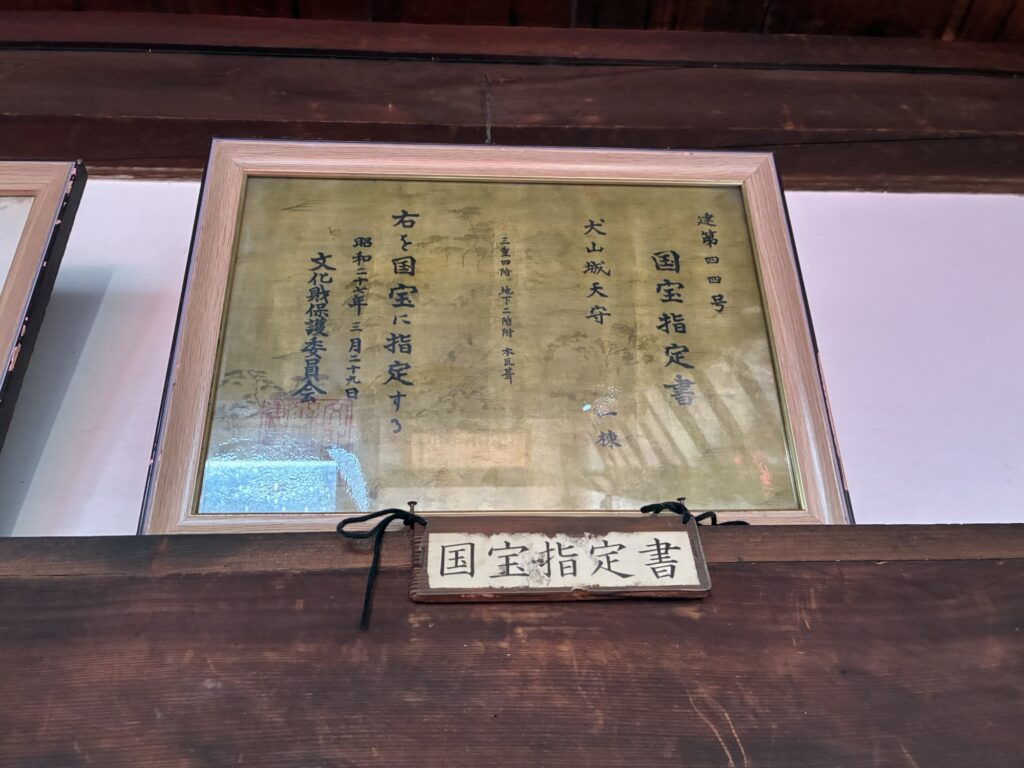 建第四四号
国宝指定書
犬山城天守 一棟
三重四階、地下二階附 本瓦葺
右を国宝に指定する
昭和二十七年 三月二十九日
文化財保護委員会
国宝指定書